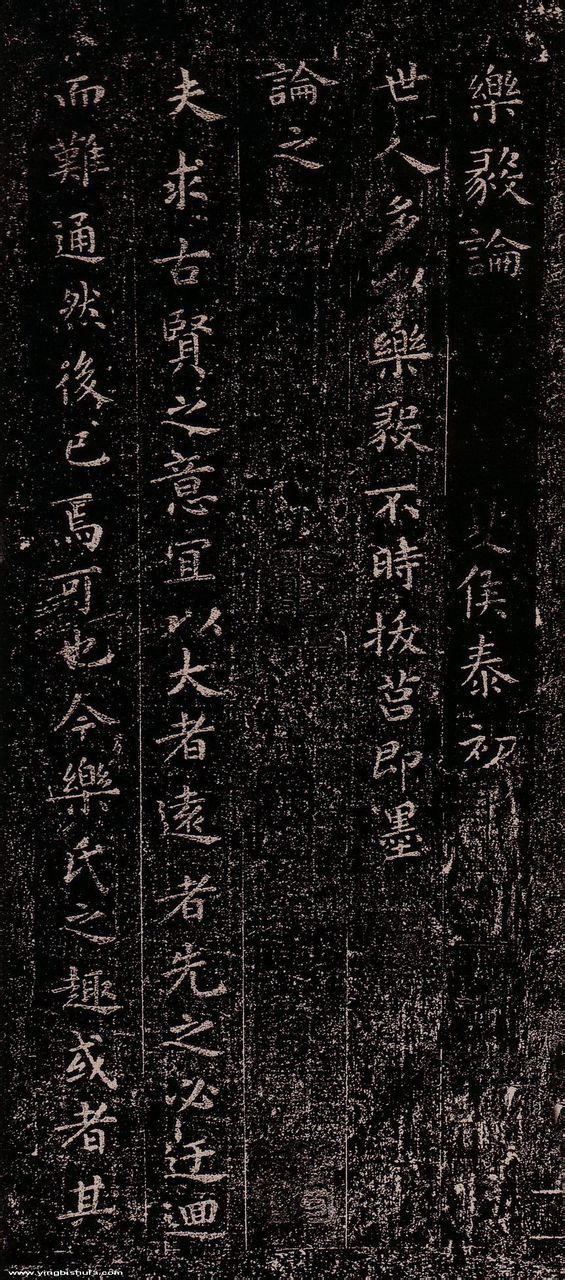 樂毅論 侯泰初
世人多以樂毅不時拔莒即墨
論之
夫求古賢之意宜以大者遠者先之必迂迴
而難通然後已焉可也今樂氏之趣或者其
www.yingbishufa.com